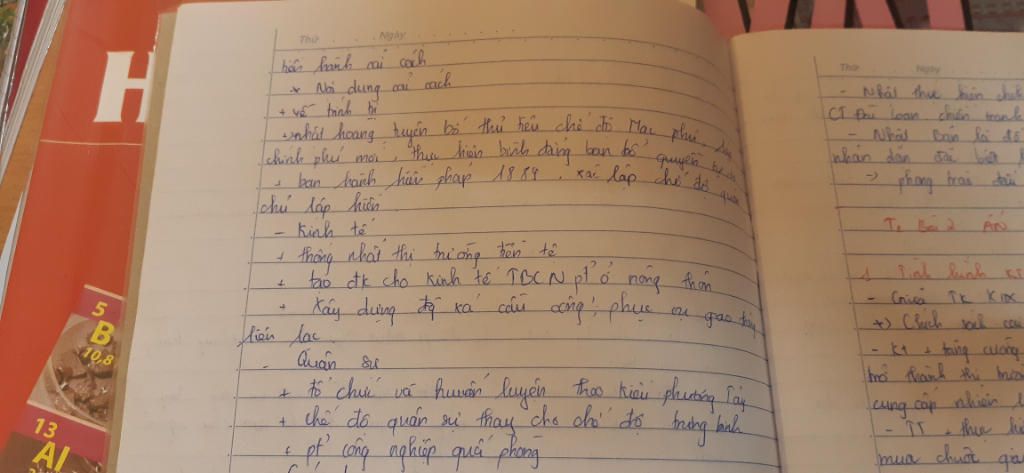 H
5
B
10,8
13
Al
Thứ Ngày
tiến hành cải cách
* Nội dung cải cách
+ về chính trị
+ nhật hoàng tuyên bố thủ tiêu chế độ Mạc phủ, lập
chính phủ mới, thực hiện bình đẳng ban bố quyền tự do
+ ban hành hiến pháp 1889, xác lập chế độ quân
chủ lập hiến
- Kinh tế
+ thống nhất thị trường tiền tệ
+ tạo đk cho kinh tế TBCN pt ở nông thôn
+ Xây dựng cầu cống, phục vụ giao
liên lạc
- Quân sự
+ tổ chức và huấn luyện theo kiểu phương Tây
+ chế độ quân sự thay cho chế độ trưng binh
+ pt công nghiệp quốc phòng
Thứ Ngày
- Nhật thực hiện
CT Đài Loan chiến tranh
- Nhật Bản là đế
nhân dân đặc biệt
-> phong trào đấu
Bài 2 ẤN
1 Tình hình KT
- Giữa TK XIX
*) Chính sách cai
- KT + tăng cường
trở thành thị trường
cung cấp nhiên
- TT + thực hiện
mua chuộc gia